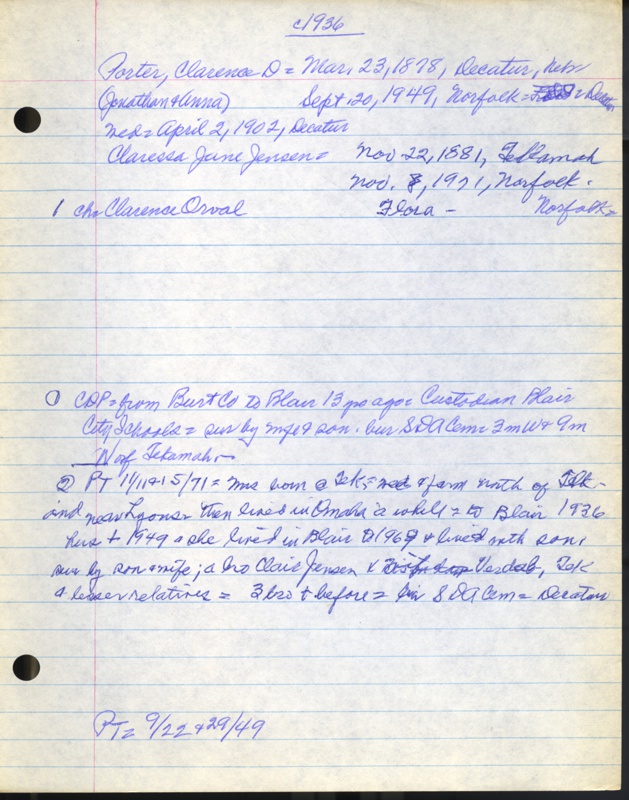 c1936
Porter, Clarence D = Mar. 23, 1878, Decatur, Neb
(Jonathan & Anna) Sept. 20, 1949, Norfolk = Decatur
med = April 2, 1902, Decatur
Claressa June Jensen = Nov 22, 1881, Tekamah
Nov. 8, 1971, Norfolk.
1 ch = Clarence Orval Flora - Norfolk =
① CDP = from Burt Co to Blair 13 yo ago = Custodian Blair
City Schools = sur by mfe & son. bur SDA Cem = 3 m W & 9 m
N of Tekamah. -
② PT 11/11 & 15/71 = mrs born @ Tek, = med & farm north of Tek -
and near Lyons = then lived in Omaha a while = to Blair 1936
hus + 1949 & she lived in Blair to 1969 & lived with son,
sur by son & wife; a bro Clair Jensen & Verdel, Tek
& lesser relatives = 3 bro + before = bur SDA Cem = Decatur
PT = 9/22 & 29/49